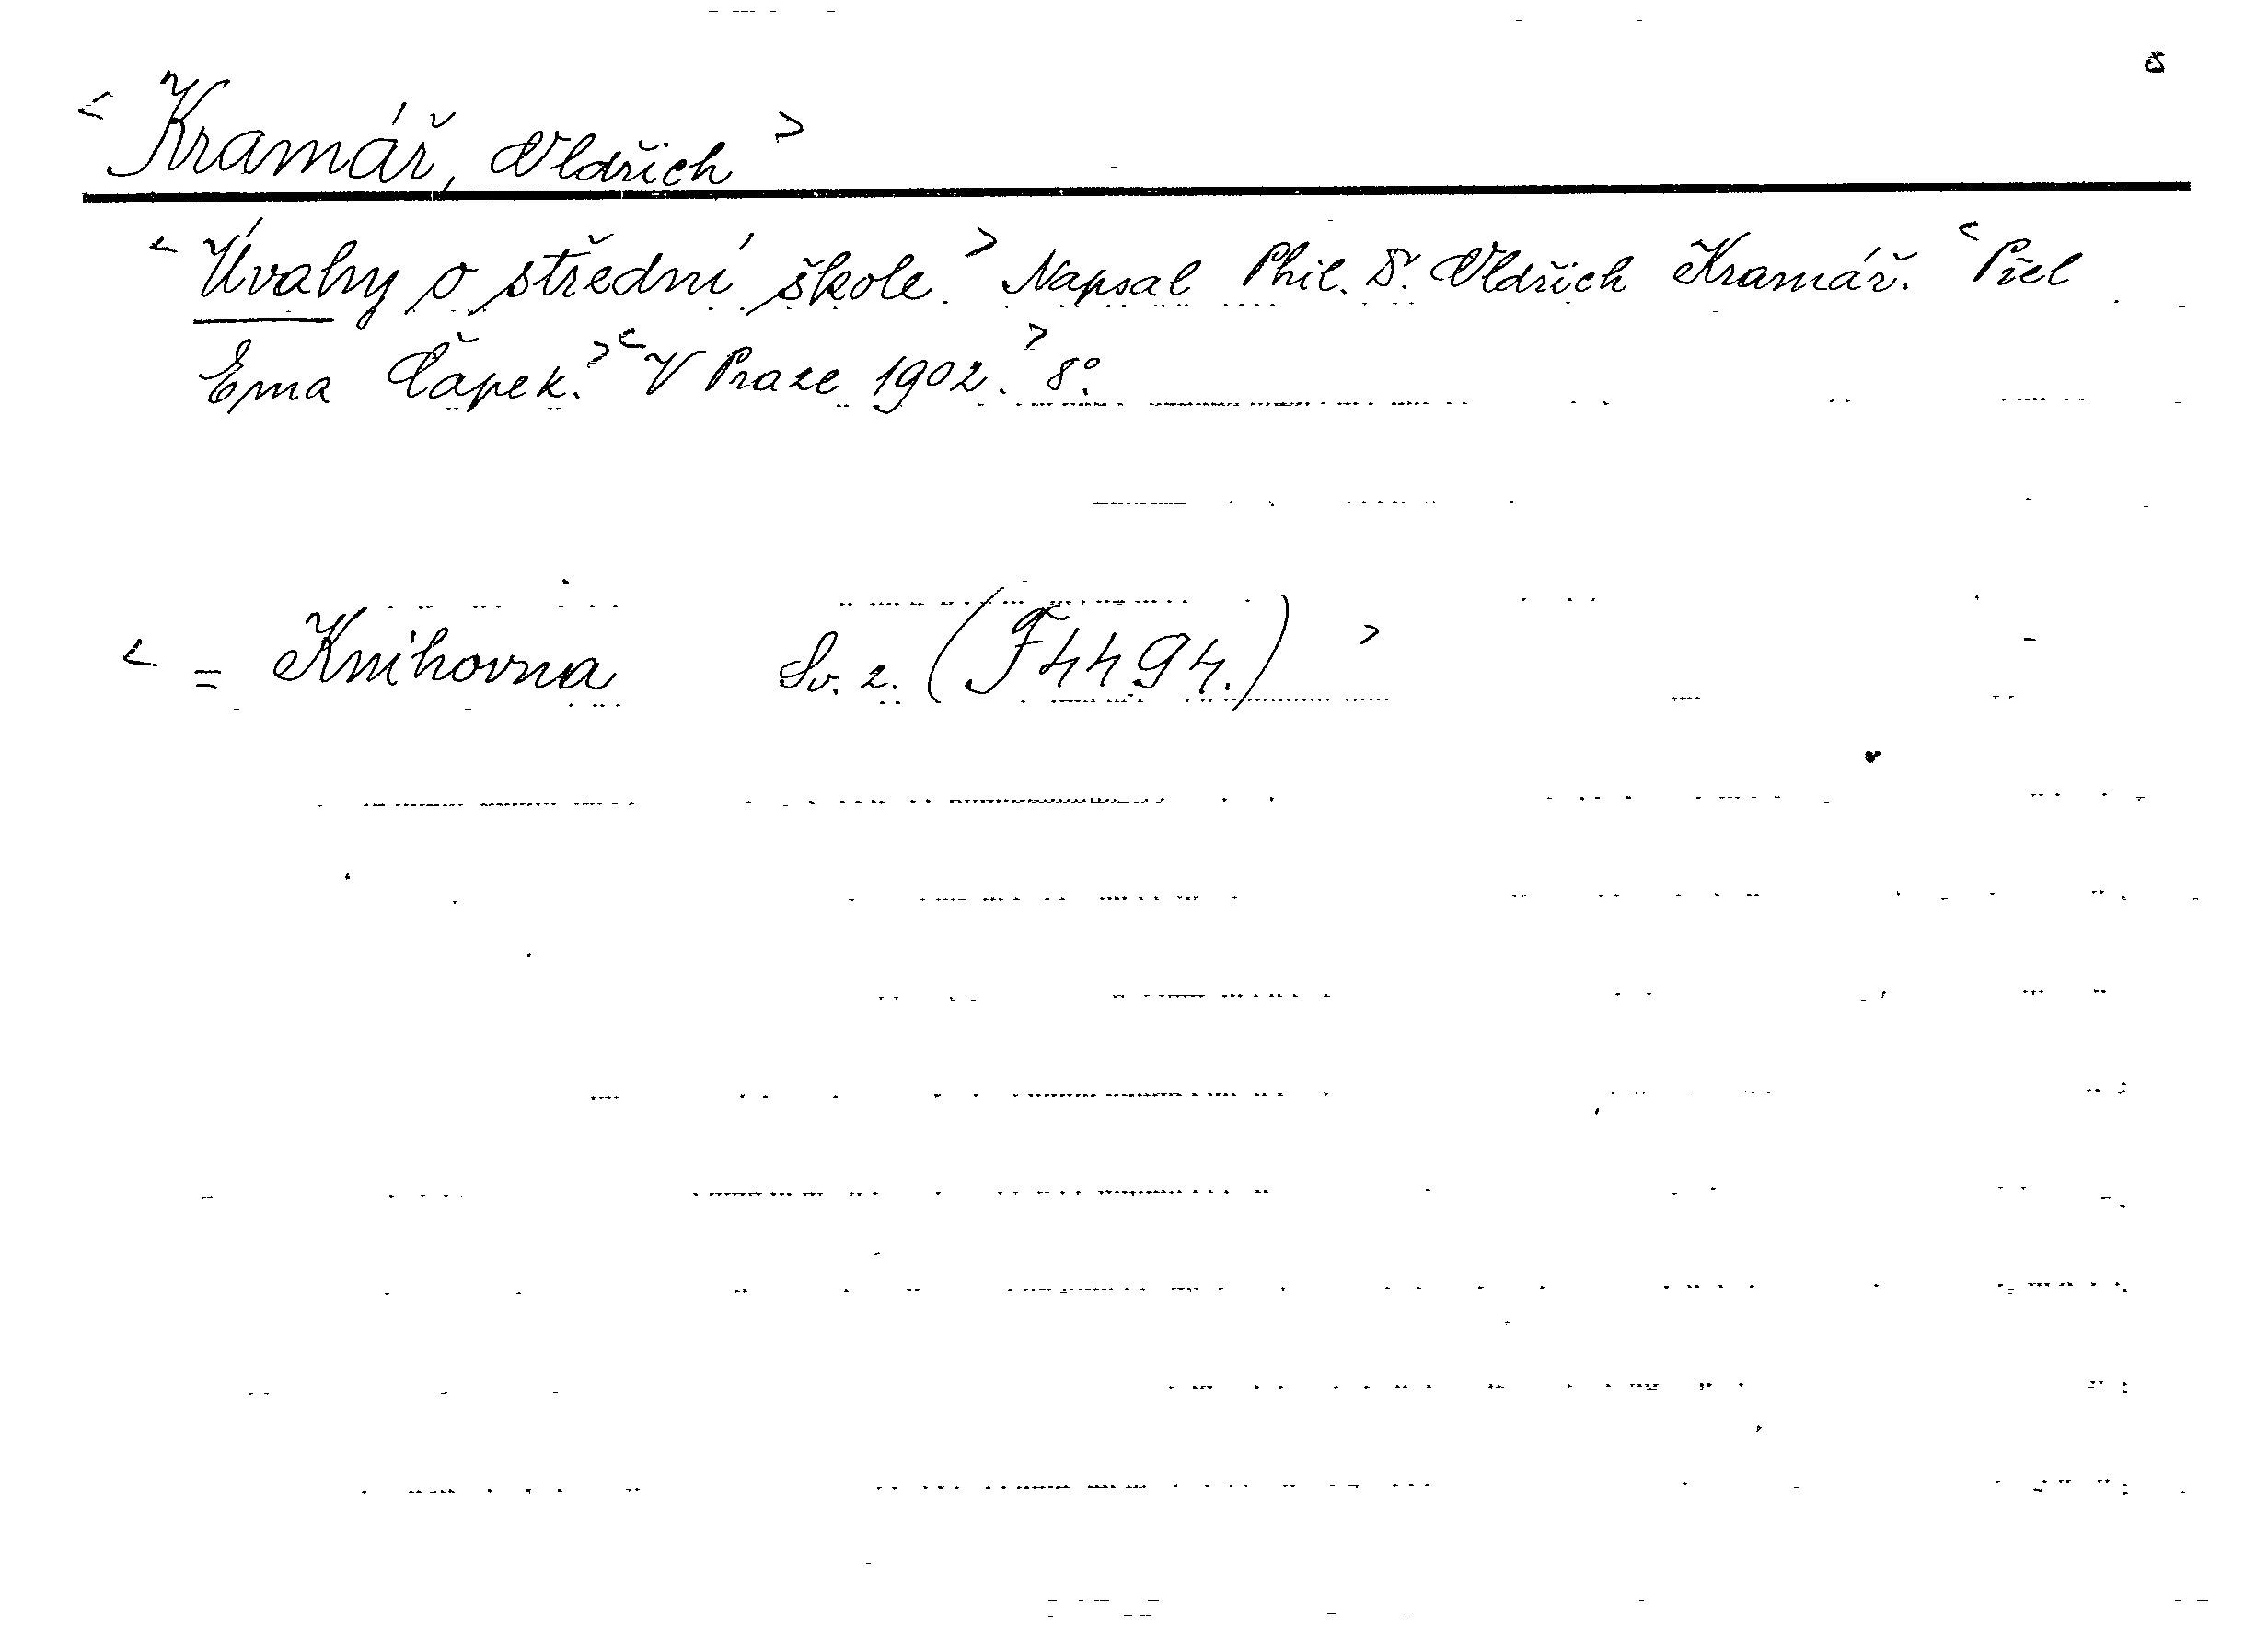 š
< Kramář, Oldřich >
< Úvahy o střední škole. > Napsal Phil. Dr. Oldřich Kramář. < Přel
Ema Čapek. > < V Praze 1902. > 8°.
< = Knihovna Sv. 2. (F4494.) >